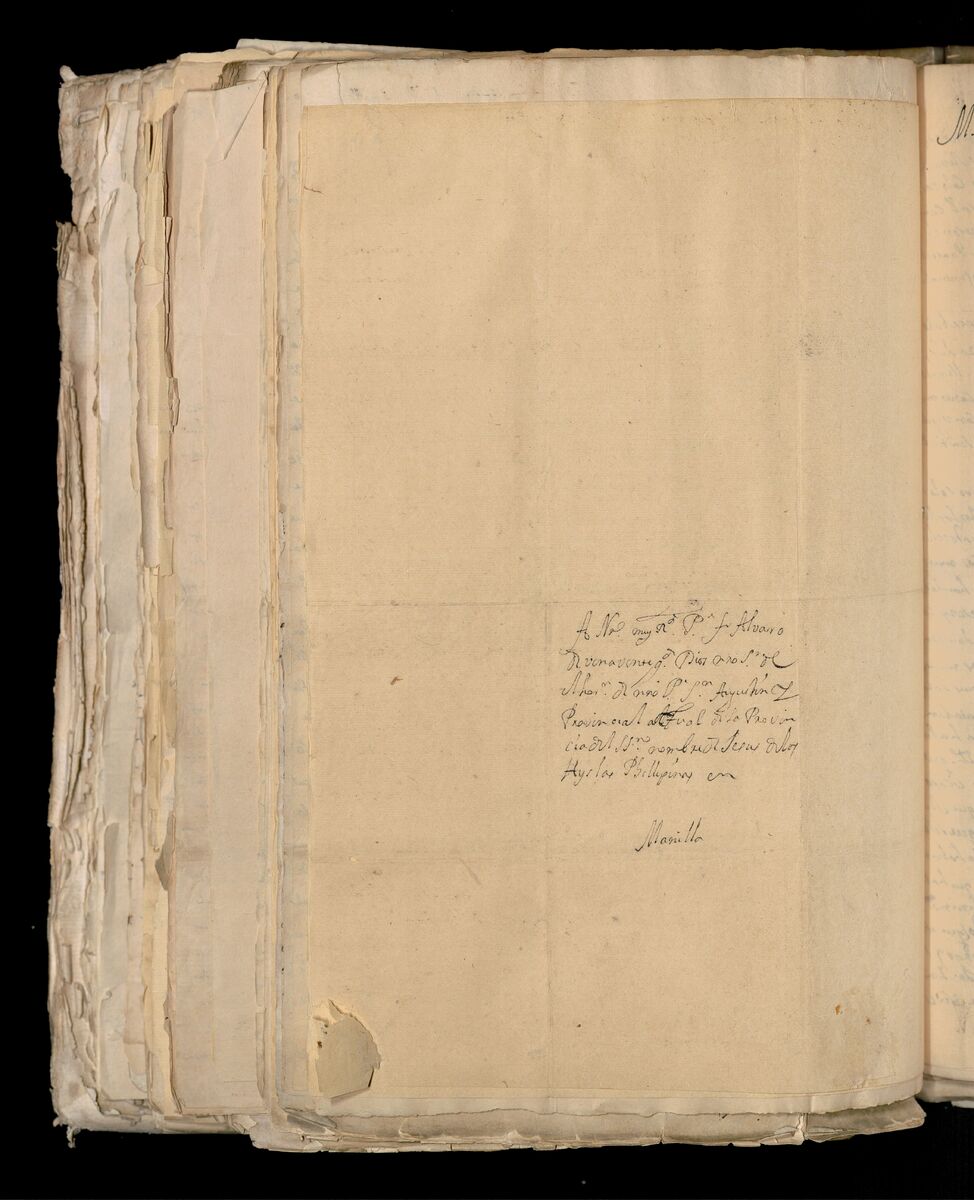 A Nro. muy Rdo. Pe. fr Alvaro
de venavente gde. Dios nro Sr. del
el horn. de nro Pe. Sn. Agustin Y
Provincial actual de la Provin
cia del SSmo nombre de Jesus de los
Hyslas Phillipinas en
Manilla
M